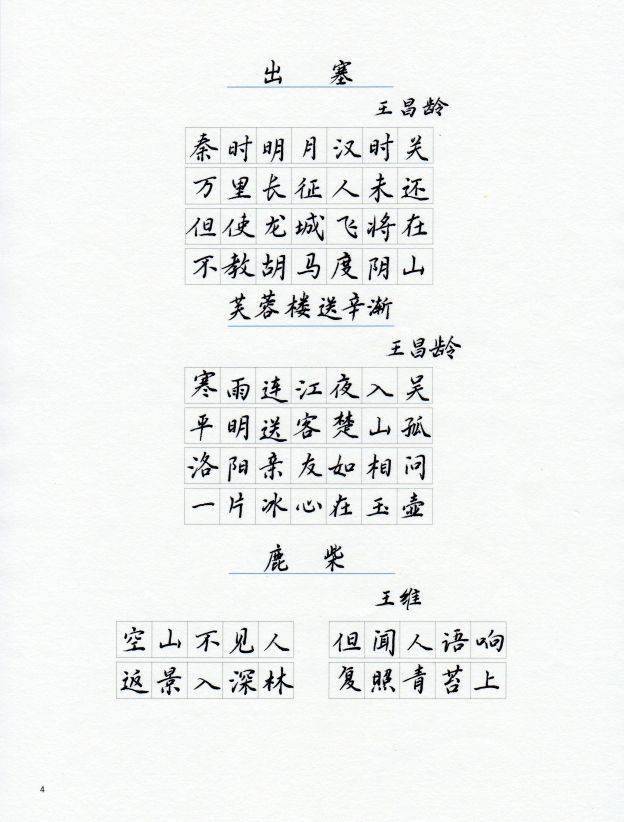 出塞
王昌龄
秦时明月汉时关
万里长征人未还
但使龙城飞将在
不教胡马度阴山
芙蓉楼送辛渐
王昌龄
寒雨连江夜入吴
平明送客楚山孤
洛阳亲友如相问
一片冰心在玉壶
鹿柴
王维
空山不见人 但闻人语响
返景入深林 复照青苔上
4